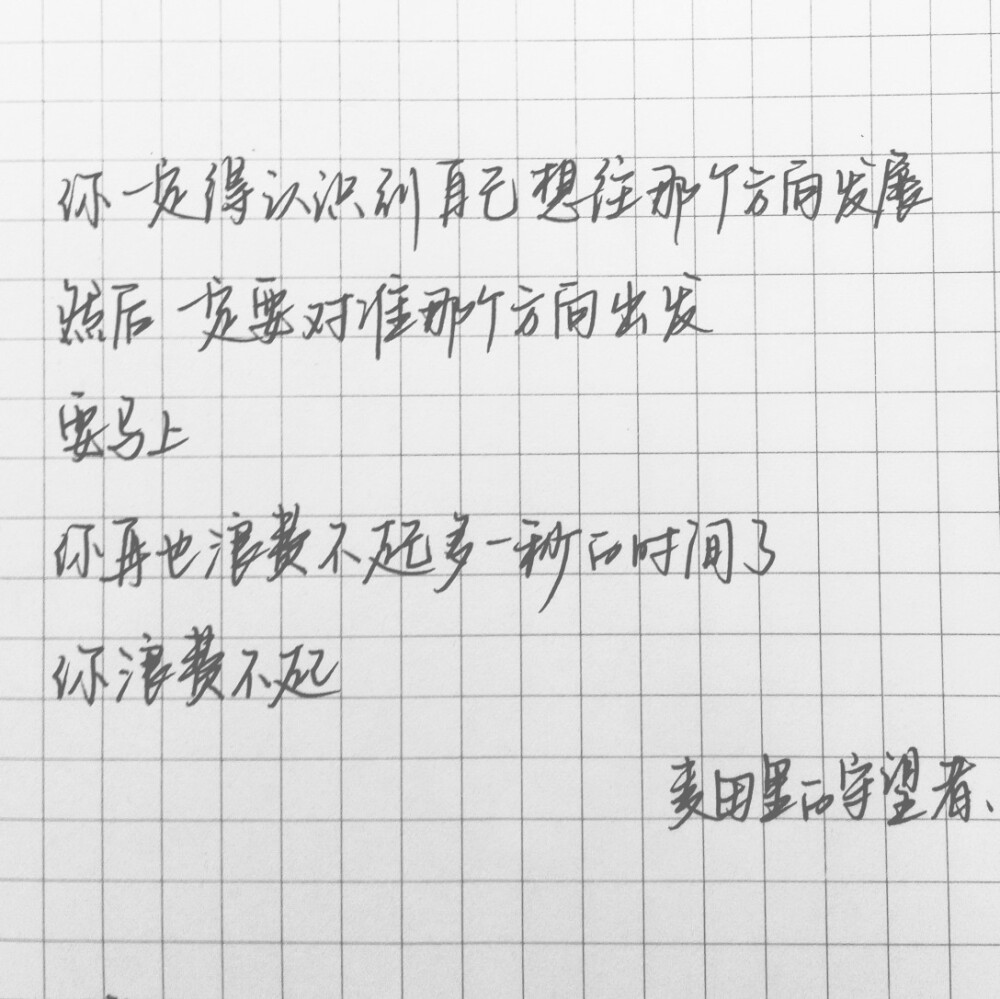 你一定得认识到自己想往那个方向发展
然后一定要对准那个方向出发
要马上
你再也浪费不起多一秒的时间了
你浪费不起
麦田里的守望者、